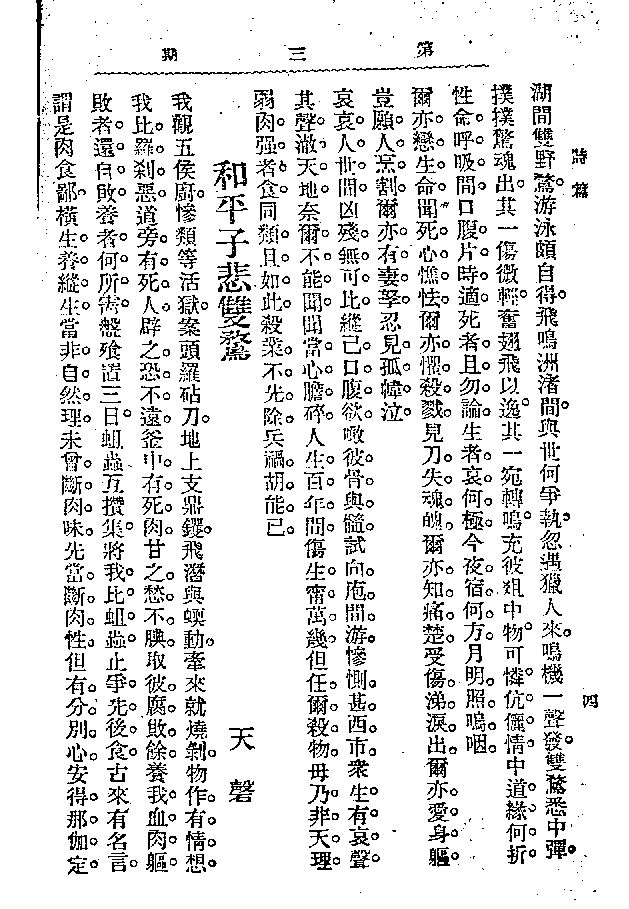 第三期
詩篇
四
湖間雙野鶩。游泳頗自得。飛鳴洲渚間。與世何爭執。忽遇獵人來。鳴機一聲發。雙鶩悉中彈。
撲撲驚魂出。其一傷微輕。奮翅飛以逸。其一宛轉鳴。充彼俎中物。可憐伉儷情。中道緣何折。
性命呼吸間。口腹片時適。死者且勿論。生者哀何極。今夜宿何方。月明照嗚咽。
爾亦戀生命。聞死心憔怯。爾亦懼殺戮。見刀失魂魄。爾亦知痛楚。受傷涕淚出。爾亦愛身軀。
豈願人烹割。爾亦有妻孥。忍見孤幃泣。
哀哀人世間。凶殘無可比。縱已口腹欲。噉彼骨與髓。試向庖間游。慘惻甚西市。衆生有哀聲。
其聲澈天地。奈爾不能聞。聞當心膽碎。人生百年間。傷生甯萬幾。但任爾殺物。毋乃非天理。
弱肉强者食。同類且如此。殺業不先除。兵禍胡能已。
和平子悲雙鶩
天磬
我觀五侯廚。慘類等活獄。案頭羅砧刀。地上支鼎鑊。飛潛與蝡動。牽來就燒剝。物作有情想。
我比羅剎惡。道旁有死人。辟之恐不遠。釜中有死肉。甘之愁不腆。取彼腐敗餘。養我血肉軀。
敗者還自敗。養者何所需。盤飧置三日。蛆蟲互攢集。將我比蛆蟲。止爭先後食。古來有名言。
謂是肉食鄙。橫生養縱生。當非自然理。未曾斷肉味。先當斷肉性。但有分別心。安得那伽定。